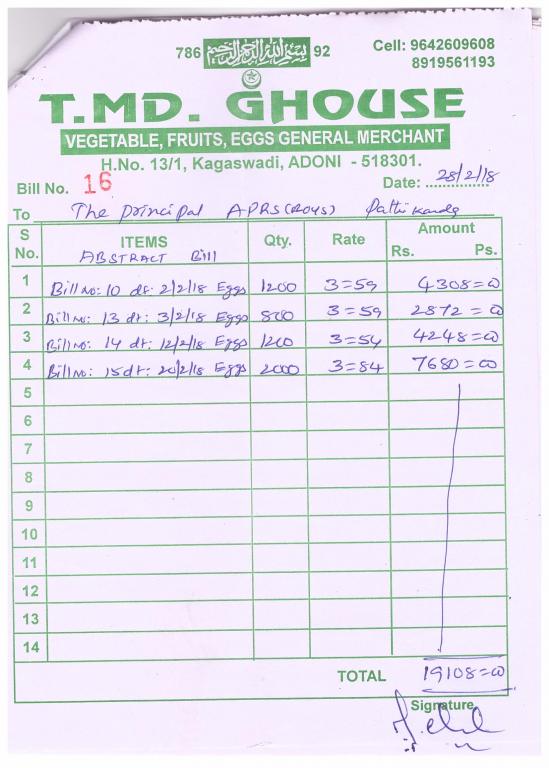 786 بسم الله الرحمن الرحيم 92
Cell: 9642609608
8919561193
T.MD. GHOUSE
VEGETABLE, FRUITS, EGGS GENERAL MERCHANT
H.No. 13/1, Kagaswadi, ADONI - 518301.
Bill No. 16 Date: 28/2/18
To The principal APRS(BOYS) Pattikonda
S No. ITEMS Qty. Rate Amount
Rs. Ps.
ABSTRACT Bill
1 Bill no: 10 dt: 2/2/18 Eggs 1200 3=59 4308=00
2 Bill no: 13 dt: 3/2/18 Eggs 800 3=59 2872=00
3 Bill no: 14 dt: 12/2/18 Eggs 1200 3=54 4248=00
4 Bill no: 15 dt: 20/2/18 Eggs 2000 3=84 7680=00
5
6
7
8
9
10
11
12
13
14
TOTAL 19108=00
Signature